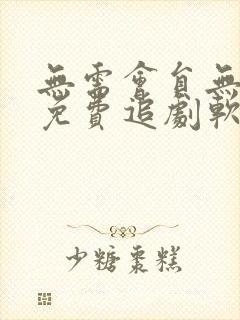 無需會員無
免費追劇軟
少糖棗糕